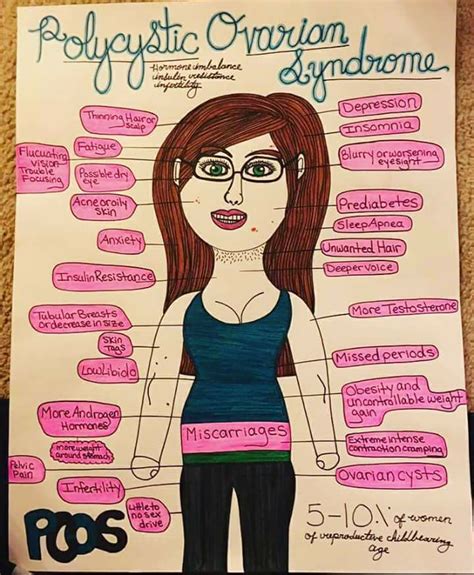 Polycystic Ovarian
Syndrome
Hormone imbalance
insulin resistance
infertility
Thinning Hair or
scalp
Fatigue
Flucuating
vision
Trouble
Focusing
Possible dry
eye
Acne or oily
skin
Anxiety
Insulin Resistance
Tubular Breasts
or decrease in size
Skin
Tags
Low Libido
More Androgen
Hormones
more weight
around stomach
Pelvic
Pain
Infertility
Little to
no sex
drive
PCOS
Depression
Insomnia
Blurry or worsening
eyesight
Prediabetes
Sleep Apnea
Unwanted Hair
Deeper voice
More Testosterone
Missed periods
Obesity and
uncontrollable weight
gain
Miscarriages
Extreme intense
contraction cramping
Ovarian cysts
5-10% of women
of reproductive childbearing
age